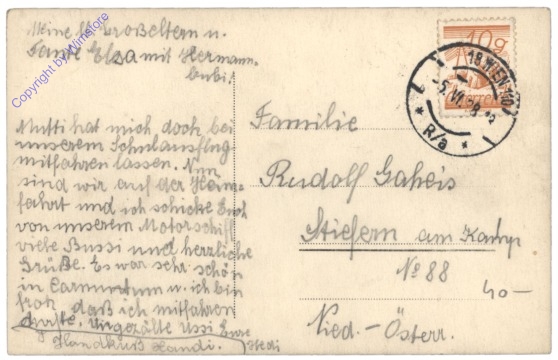 Meine l. Großeltern u.
Tante Elsa mit Hermann
Bubi.
Mutti hat mich doch bei
unserem Schulausflug
mitfahren lassen. Nun
sind wir auf der Heim-
fahrt und ich schicke Euch
von unserem Motorschiff
viele Bussi und herzliche
Grüße. Es war sehr schön
in Carnuntum u. ich bin
froh, daß ich mitfahren
durfte. Ungezälte Ussi Eure
Handkuß Handi. Hedi
Familie
Rudolf Gaheis
Stiefern am Kamp
No 88
40—
Nied.-Österr.
10g
18 WIEN 110
5. VI. 28
* R/a *
Copyright by Winstore